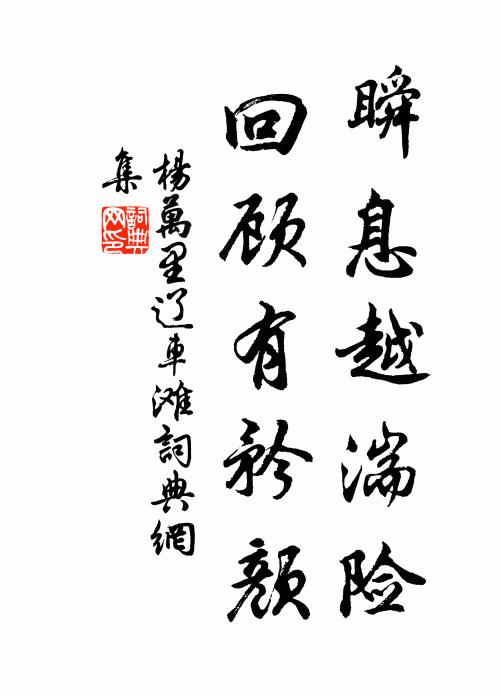 瞬息越湍险
回顾有矜颜
楊萬里过車滩詞典網
集
詞典网印